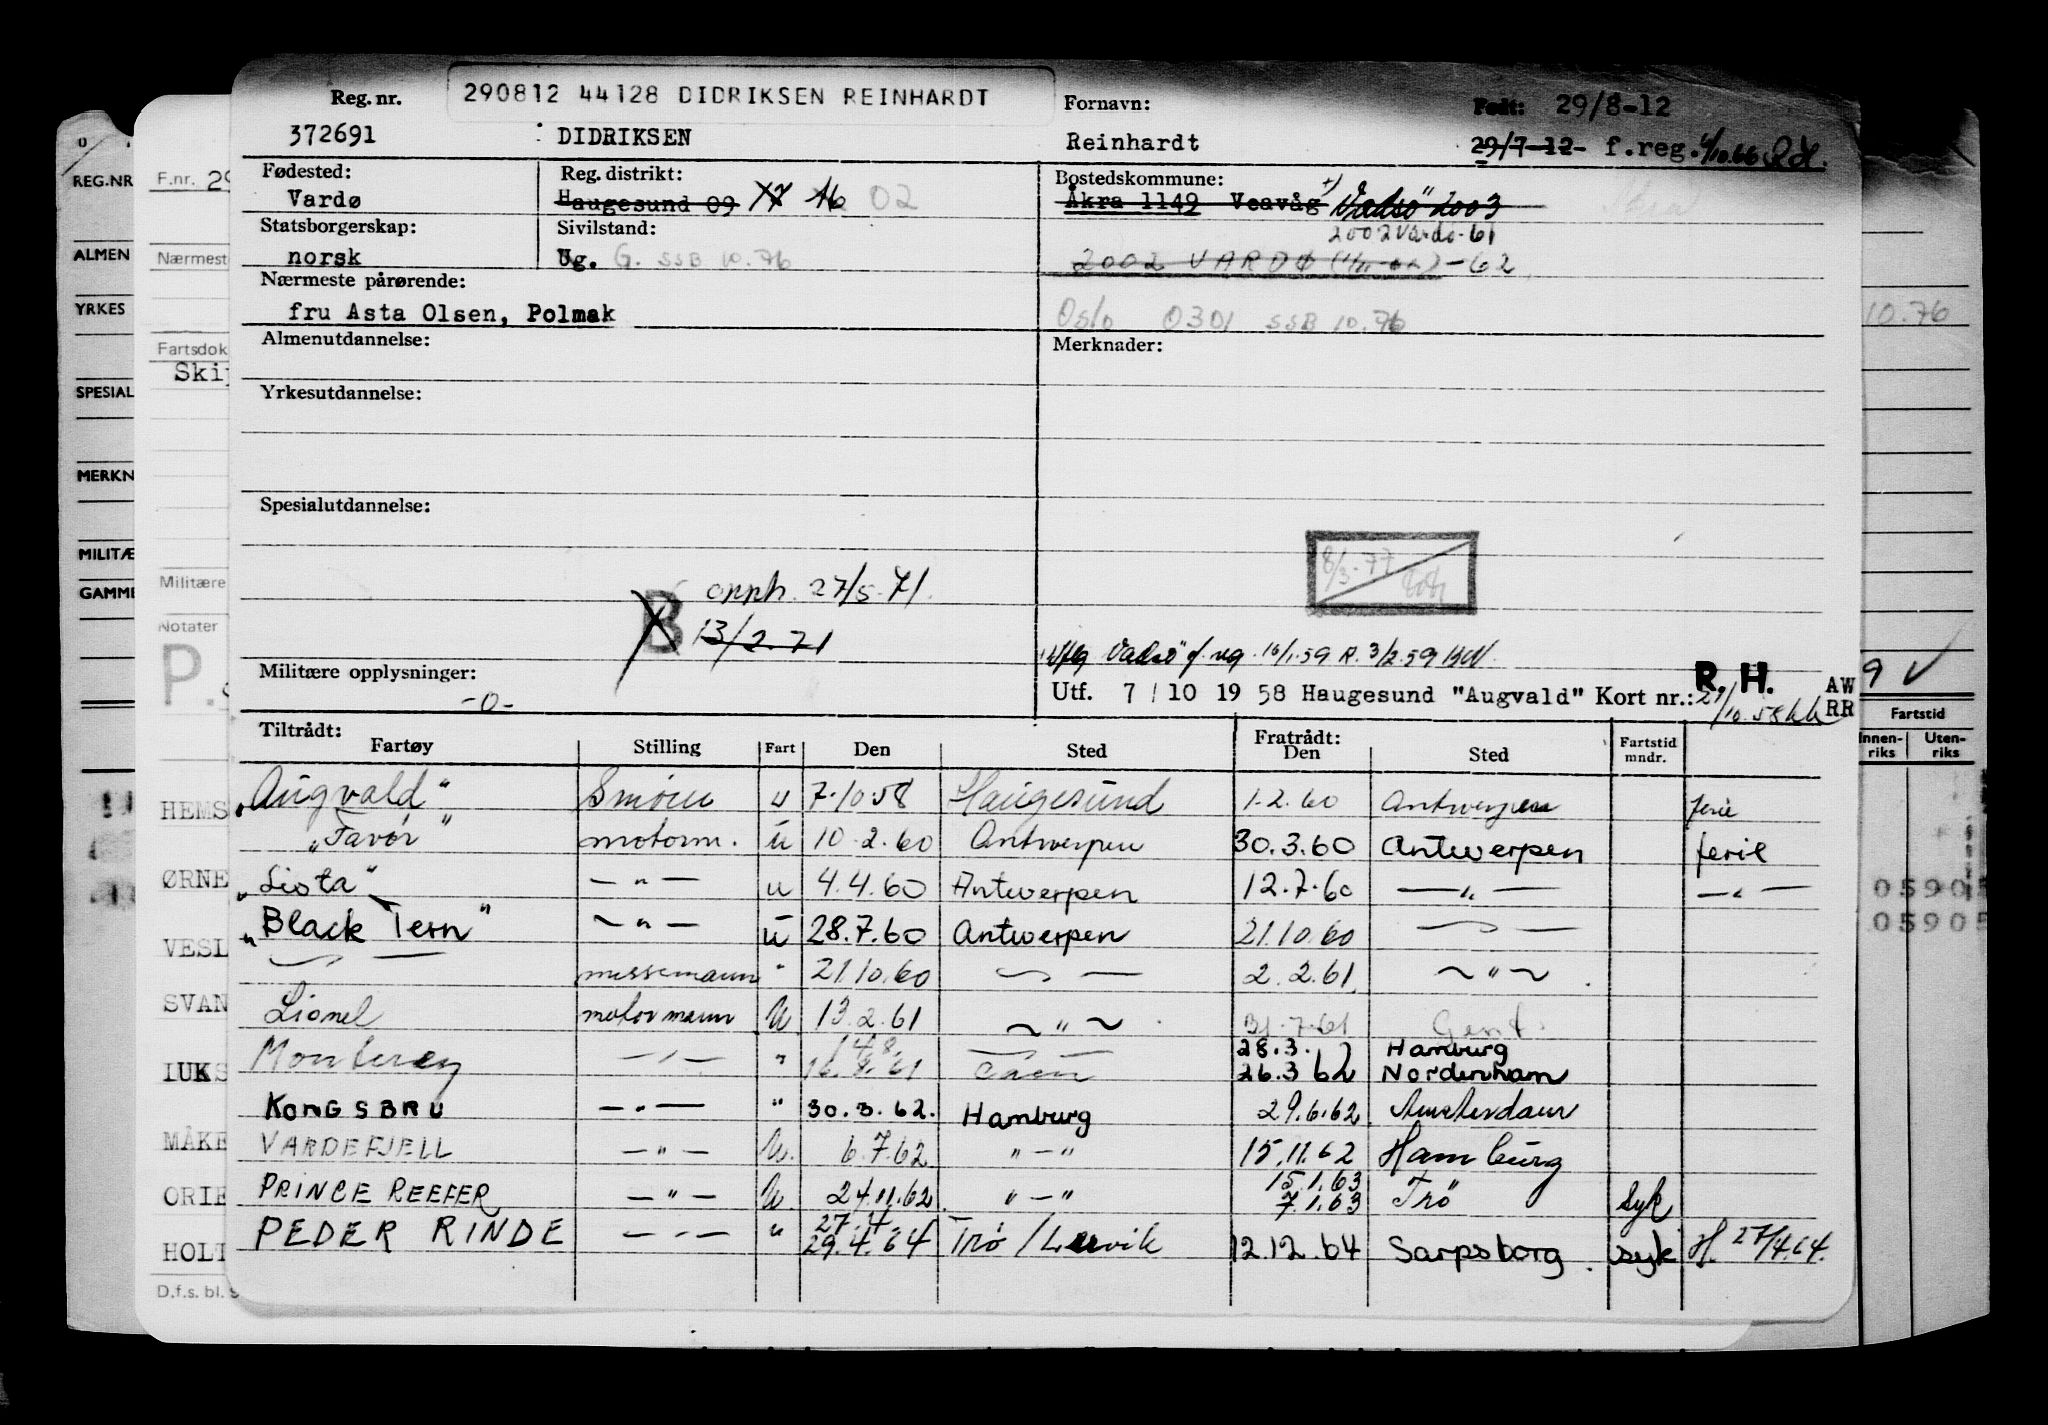 290812 44128 DIDRIKSEN REINHARDT
Reg. nr. Fornavn: Født: 29/8-12
372691 DIDRIKSEN Reinhardt 29/7-12- f.reg. 4/10.66
Fødested: Reg. distrikt: Bostedskommune:
Vardø Haugesund 09 17 16 02 Åkra 1149 Veavåg Vadsö 2003
Statsborgerskap: Sivilstand: 2002 Vardø-61
norsk Ug. G. SSB 10.76 2002 VARDØ -62
Nærmeste pårørende:
fru Asta Olsen, Polmak Oslo 0301 SSB 10.76
Almenutdannelse: Merknader:
Yrkesutdannelse:
Spesialutdannelse:
8/3-77
opph. 27/5-71.
B 13/2-71
Vadsö f. reg. 16/1.59 R. 3/2.59
Militære opplysninger: -0-
Utf. 7/10 1958 Haugesund "Augvald" Kort nr.: R. H. AW
27/10.58 RR
Tiltrådt: Fratrådt:
Fartøy Stilling Fart Den Sted Den Sted Fartstid mndr.
"Augvald" Smører u 7.10.58 Haugesund 1.2.60 Antwerpen ferie
"Favör" motorm. u 10.2.60 Antwerpen 30.3.60 Antwerpen ferie
"Lista" — " — u 4.4.60 Antwerpen 12.7.60 — " — — " —
"Black Tern" — " — u 28.7.60 Antwerpen 21.10.60 — " —
— " — messemann " 21.10.60 — " — 2.2.61 — " —
Lionel motormann U 13.2.61 — " — 31.7.61 Gent.
Monterey — " — " 14.8. 16.8.61 Caen 28.3. 26.3 62 Hamburg Nordenham
KONGSBRU — " — " 30.3.62. Hamburg 29.6.62 Amsterdam
VARDEFJELL — " — U. 6.7.62 " — " 15.11.62 Hamburg
PRINCE REEFER — " — U. 24.11.62 " — " 15.1.63 7.1.63 Trö Syk
PEDER RINDE — " — " 27.4. 29.4.64 Trö / Larvik 12.12.64 Sarpsborg. syk H. 27/4.64.
REG.NR
ALMEN
YRKES
SPESIAL
MERKN
MILITÆ
GAMME
F.nr. 29
Nærmest
Fartsdok
Skip
Militære
Notater
P.
HEMS
ØRNE
VESL
SVAN
IUKS
MÅKE
ORIE
HOLT
D.f.s. bl.
10.76
9 V
Fartstid
Innen-riks Uten-riks
05905
05905